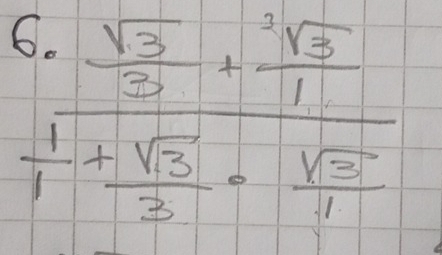 6. \frac{\frac{\sqrt{3}}{3} + \frac{^3\sqrt{3}}{1}}{\frac{1}{1} + \frac{\sqrt{3}}{3} \cdot \frac{\sqrt{3}}{1}}